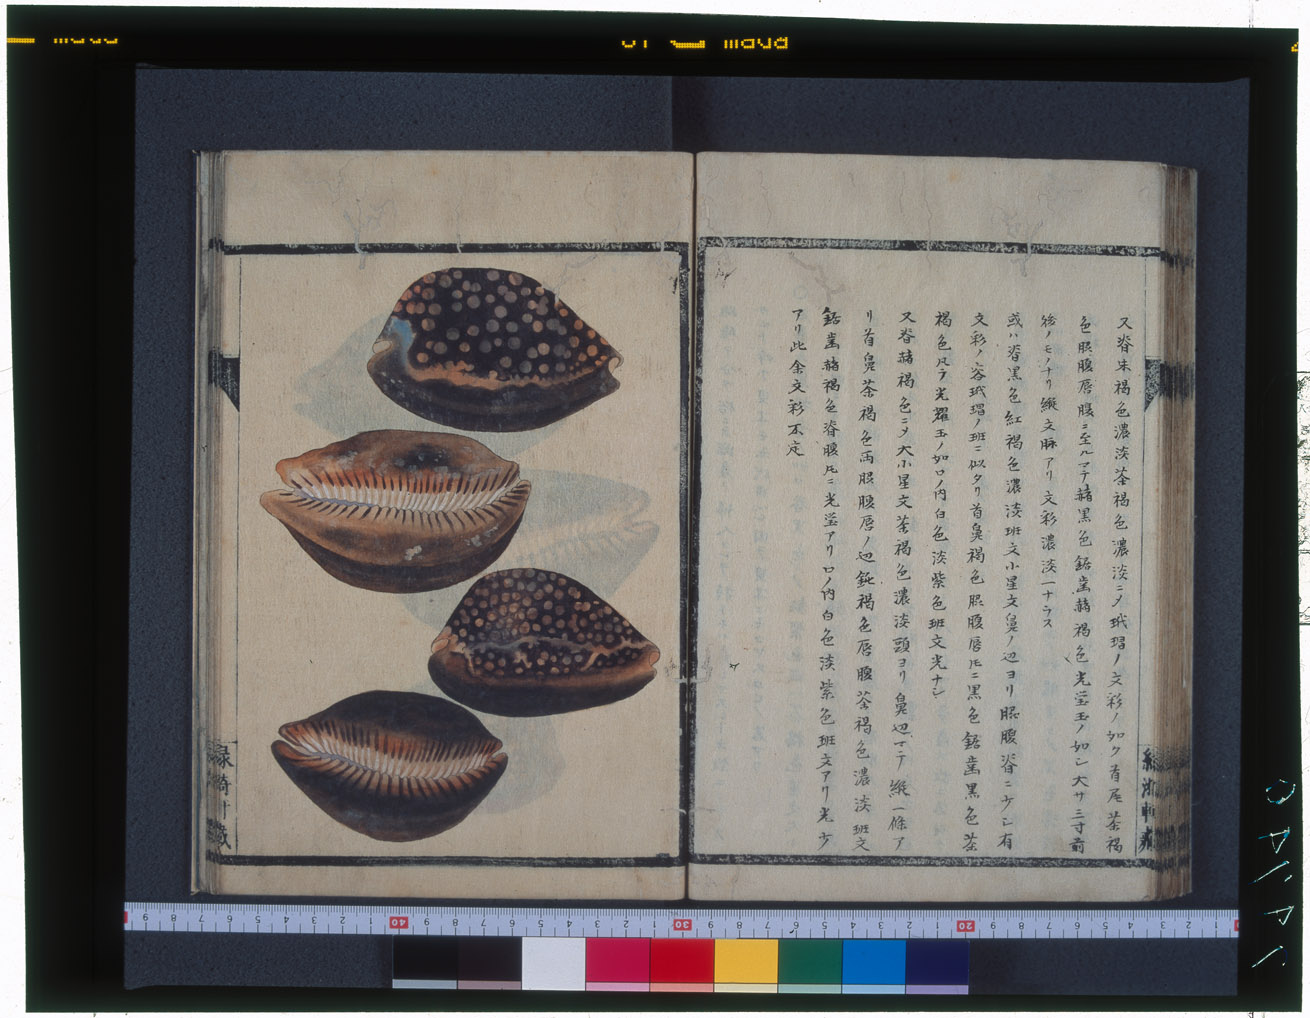 又脊朱褐色濃淡茶褐色濃淡ニメ玳瑁ノ文彩ノ如ク首尾茶褐
色眼腹唇腹ニ至ルマテ赭黒色鋸歯赭褐色光瑩玉ノ如シ大サ三寸前
後ノモノナリ縦文脉アリ文彩濃淡一ナラス
或ハ脊黒色紅褐色濃淡斑文小星文鼻ノ辺ヨリ眼腹脊ニケシ有
文彩ノ容玳瑁ノ斑ニ似タリ首鼻褐色眼腹唇ニ黒色鋸歯黒色茶
褐色光耀玉ノ如口ノ内白色淡紫色斑文光ナシ
又脊赭褐色ニメ大小星文茶褐色濃淡頭ヨリ鼻辺マテ縦一條ア
リ首鼻茶褐色両眼腹唇ノ辺鈍褐色唇腹茶褐色濃淡斑文
鋸歯赭褐色脊腹ニ光瑩アリ口ノ内白色淡紫色斑文アリ光ナ
アリ此余文彩不定